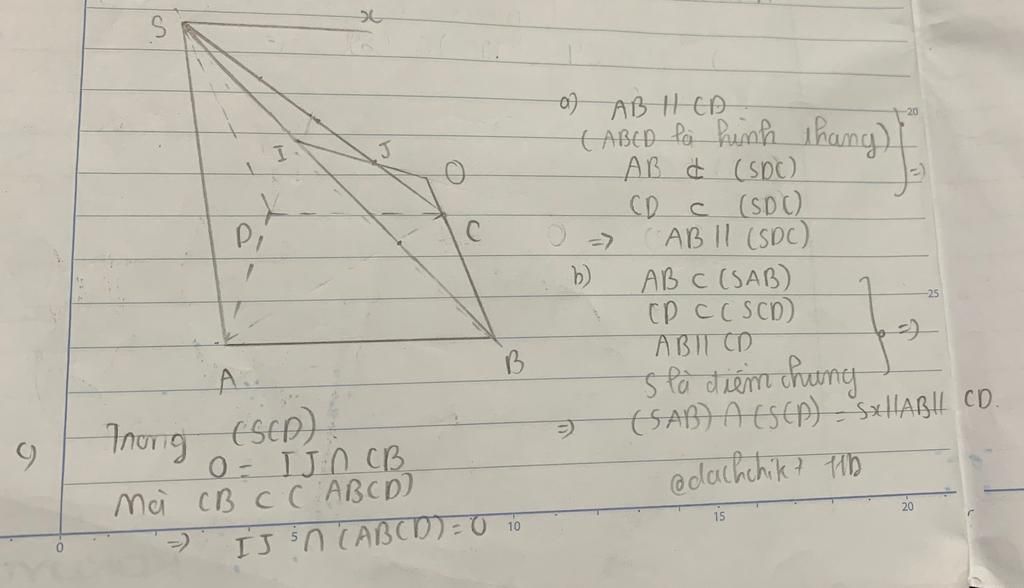 S
x
I
J
O
D
C
A
B
a) AB // CD
(ABCD là hình thang)
AB ⊄ (SDC)
CD ⊂ (SDC)
=>
=> AB // (SDC)
b) AB ⊂ (SAB)
CD ⊂ (SCD)
AB // CD
S là điểm chung
=>
=> (SAB) ∩ (SCD) = Sx // AB // CD.
c) Trong (SCD)
O = IJ ∩ CB
Mà CB ⊂ (ABCD)
=> IJ ∩ (ABCD) = O
20
25
0
5
10
15
20